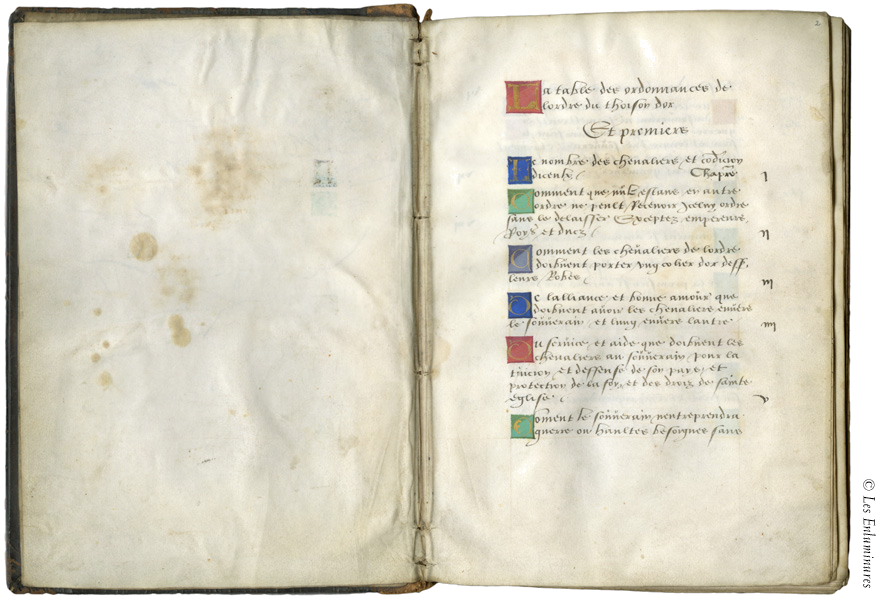 2
La table des ordonnances de
lordre du thoison dor
Et premiers
Le nombre des chevaliers, et condicion
diceulx Chapre I
Comment que nulz estans en autre
ordre ne peult recevoir icelluy ordre
sans le delaisser Exceptez, empereurs,
Roys et ducz II
Comment les chevaliers de lordre
doibvent porter ung colier dor dess9
leurs Robes III
De lalliance et bonne amour que
doibvent avoir les chevaliers envers
le souverain, et lung envers lautre IIII
Du service et aide que doibvent les
chevaliers au souverain, pour la
tuicion et deffense de son pays, et
protection de la foy, et des droiz de saincte
eglise V
Coment le souverain nentreprendra
guerre ou haultes besoignes sans
© Les Enluminures